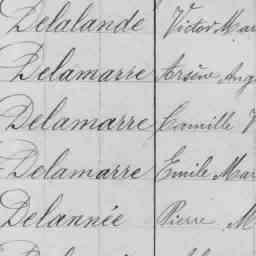 Delalande Victor Mar
Delamarre Arsène Ang
Delamarre Camille V
Delamarre Emile Mar
Delannée Pierre M